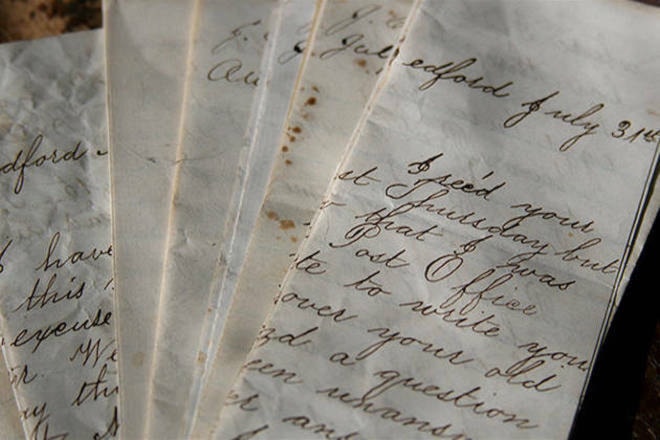 dford
I have
this
excuse
r. We
y th
J.
Au
J.
Jul
edford July 31st
I rec'd your
st Thursday but
that I was
Post Office
te to write you
over your old
nd a question
een unans
er an